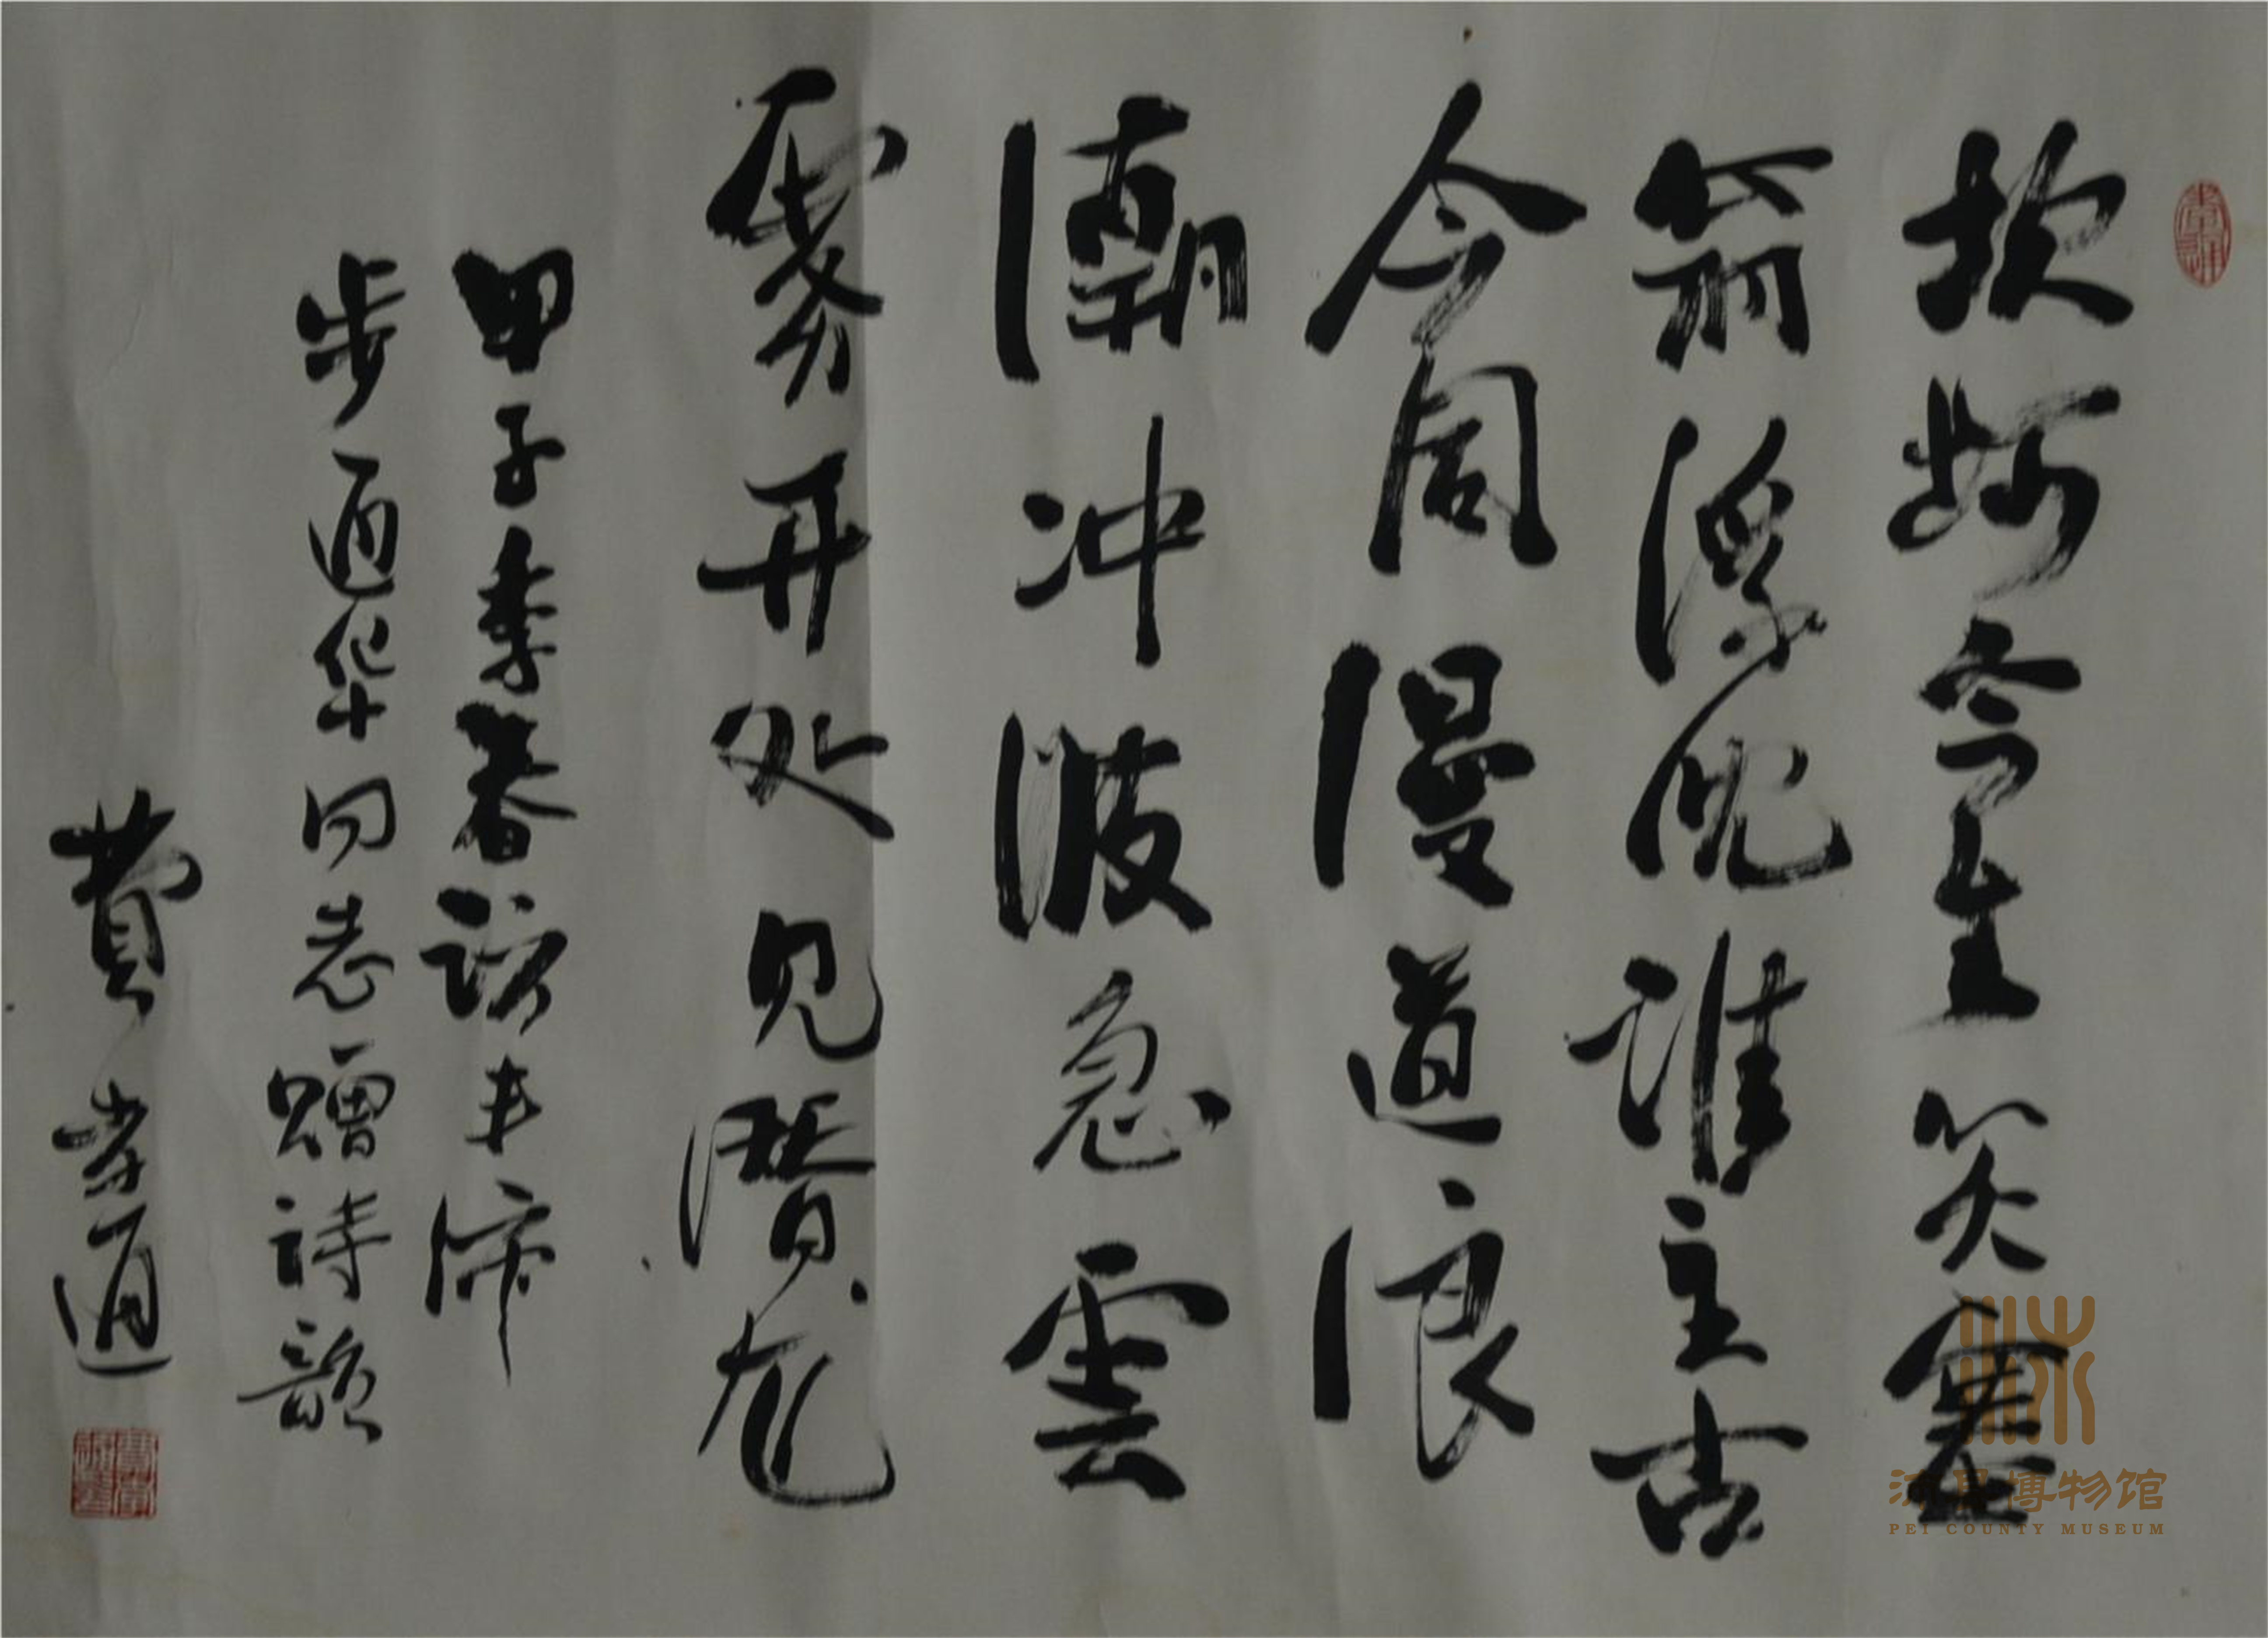 坎坷余生笑塞
翁浮沉誰主古
今同漫道浪
潮冲波急雲
雾开处见潜龙
甲子季春访丰沛
步华同志赠诗韵
費孝通
沛县博物馆
PEI COUNTY MUSEUM